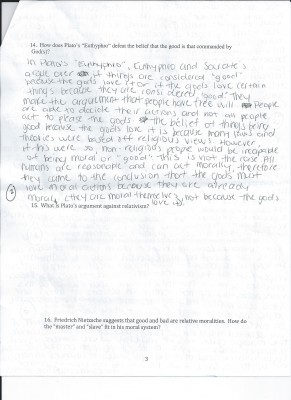 14. How does Plato's "Euthyphro" defeat the belief that the good is that commanded by
God(s)?
In Plato's "Euthyphro", Euthyphro and Socrates
argue over if things are considered "good"
because the gods love it or if the gods love certain
things because they are considered "good". They
make the argument that people have free will. People
are able to decide their actions and not all people
act to please the gods. The belief of things being
good because the gods love it is because many laws and
theories were based off religious views. However,
if this were so, non-religious people would be incapable
of being moral or "good". This is not the case. All
humans are reasonable and can act morally, therefore
they came to the conclusion that the gods must
love moral actions because they are already
moral, (they are moral themselves, not because the gods
love it).
15. What is Plato's argument against relativism?
16. Friedrich Nietzsche suggests that good and bad are relative moralities. How do
the "master" and "slave" fit in his moral system?
3